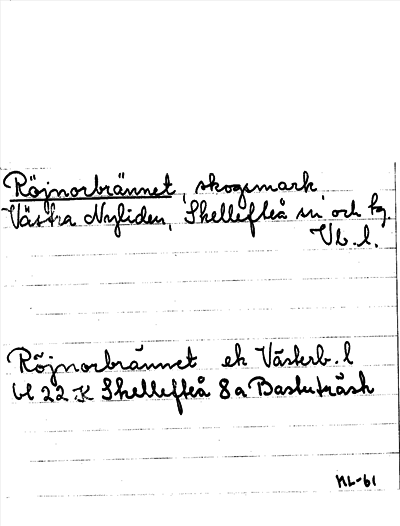 Röjnorbrännet, skogsmark
Västra Nyliden, Skellefteå sn och hg.
Vb. l.
Röjnorbrännet ek Västerb. l
bl 22 K Skellefteå 8a Bastuträsk
ML-61